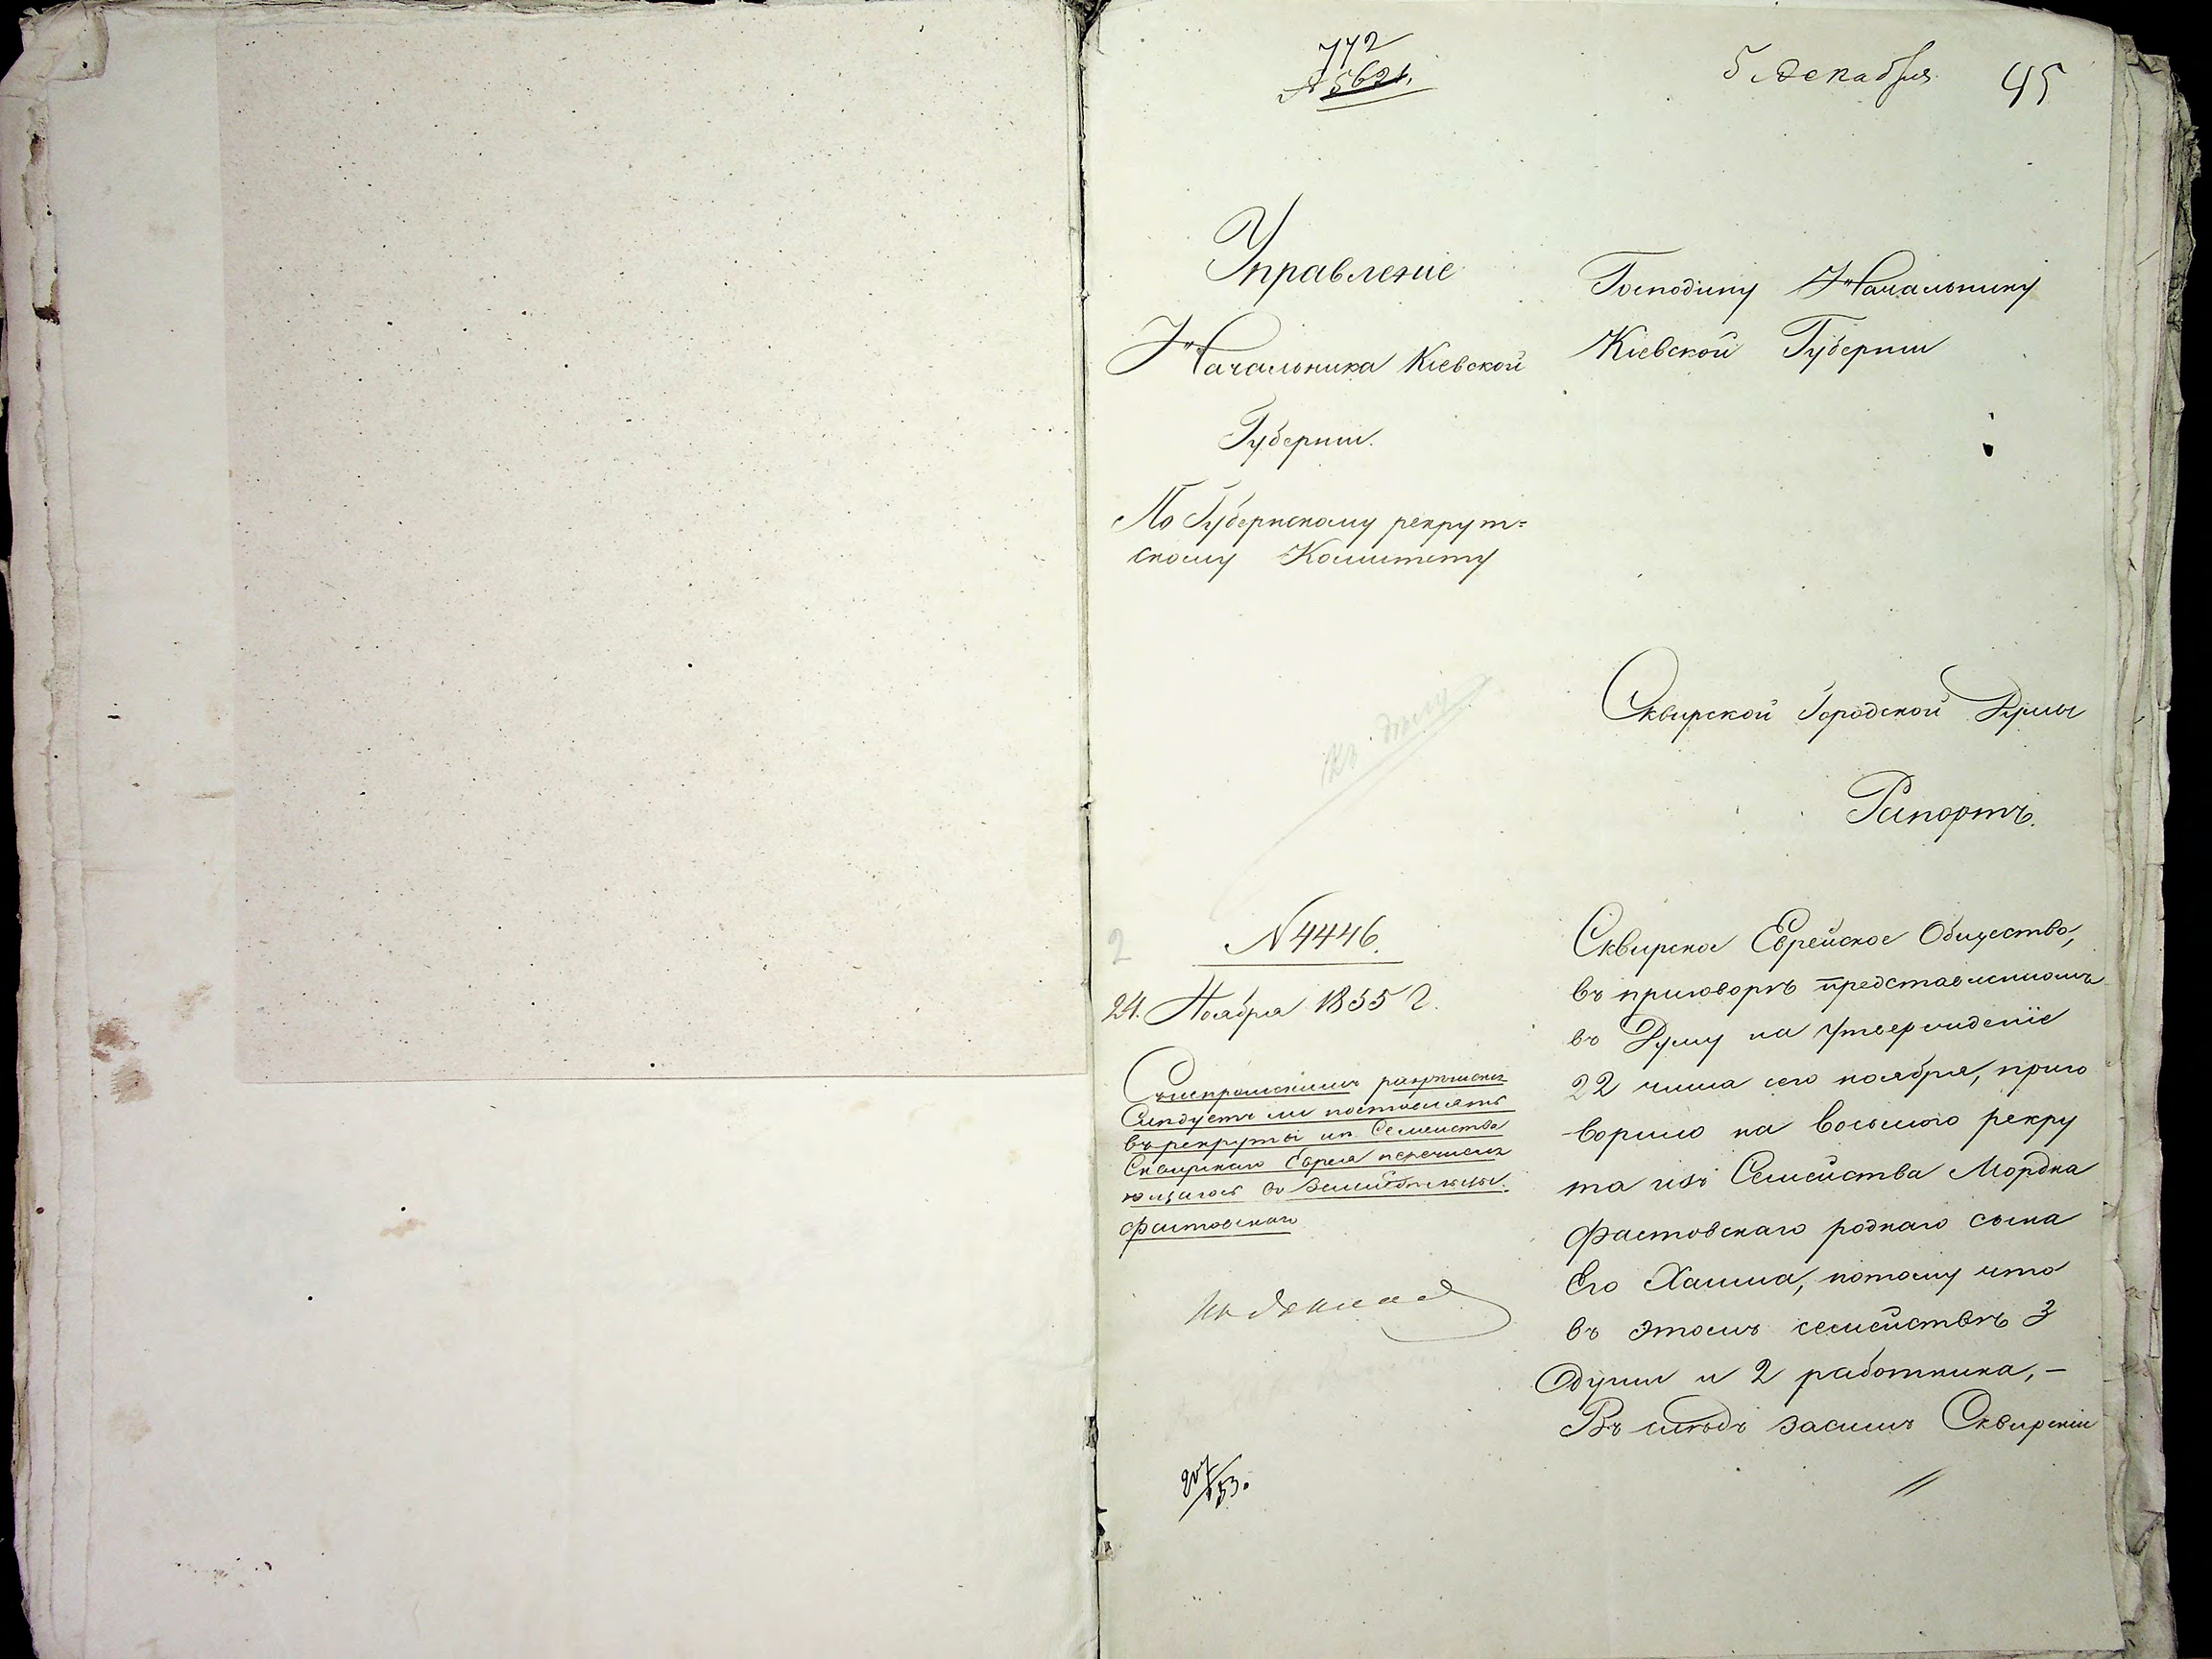 772
№ 5621.
5 Декабря
45
Управленіе
Начальника Кіевской
Губерніи.
По Губернскому рекрут=
скому Комитету
Господину Начальнику
Кіевской Губерніи
Сквирской Городской Думы
Рапортъ.
къ делу
2
N 4446.
24. Ноября 1855 г.
Съ испрошеніемъ разрешенія
Следуетъ ли поставлять
въ рекруты из Семейства
Сквирскаго Еврея перечисля
ющагося въ Земледельцы
Фастовскаго
Сквирское Еврейское Общество,
въ приговорѣ представленномъ
въ Думу на утвержденіе
22 числа сего ноября, приго
ворило на восьмого рекру
та изъ Семейства Мордка
Фастовскаго роднаго сына
Его Хаима, потому что
въ этомъ семействѣ 3
души и 2 работника, –
Въ слѣдъ засимъ Сквирскіи